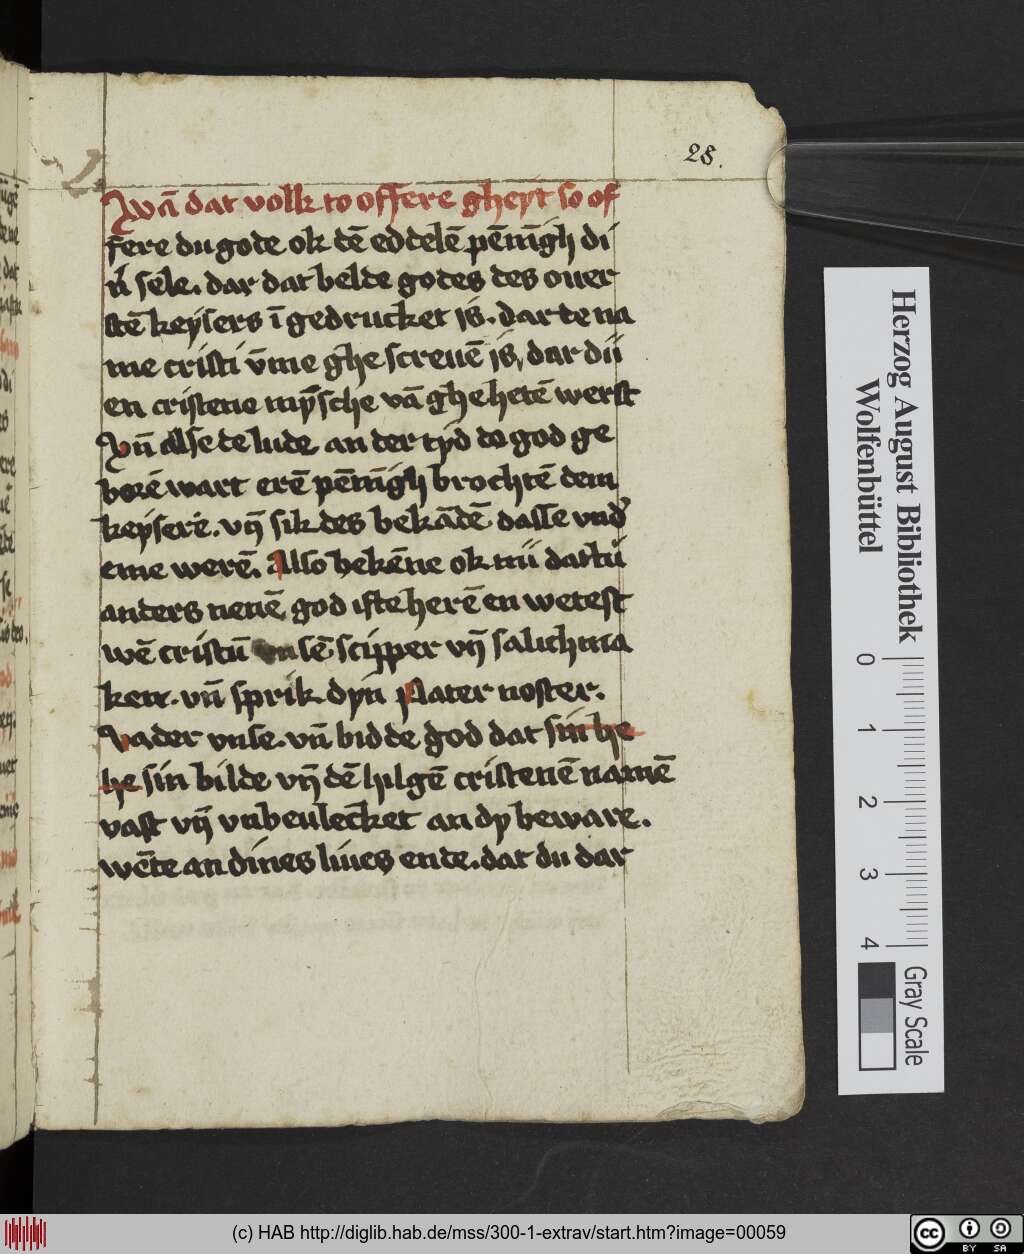 28.
Wā dat volk to offere gheyt so of
fere du gode ok dē eddelē pēnīgh di
ń sēle. dar dat belde godes des ouer
stē keysers ī gedrucket is. dar de na
me cristi v̄me ghe screuē is, dar dū
en cristene mȳsche vā ghe hetē werst
Vn̄ alse de lude an der tyd do god ge
borē wart erē pēnīgh brochtē dem
keyserē. vn̄ sik des bekādē dasse vnd᷑
eme werē. Also bekēne ok nū dat tū
anders nenē god ifte herē en wetest
wē cristū vnsē scipper vn̄ salichma
ker. vn̄ sprik dyn Pater noster.
Vader vnse. vn̄ bidde god dat sin he
he sin bilde vn̄ dē hilgē cristenē namē
vast vn̄ vnbeulecket an dy beware.
wēte an dines liues ende. dat du dar
Herzog August Bibliothek
Wolfenbüttel
0 1 2 3 4
Gray Scale
(c) HAB http://diglib.hab.de/mss/300-1-extrav/start.htm?image=00059
cc BY SA